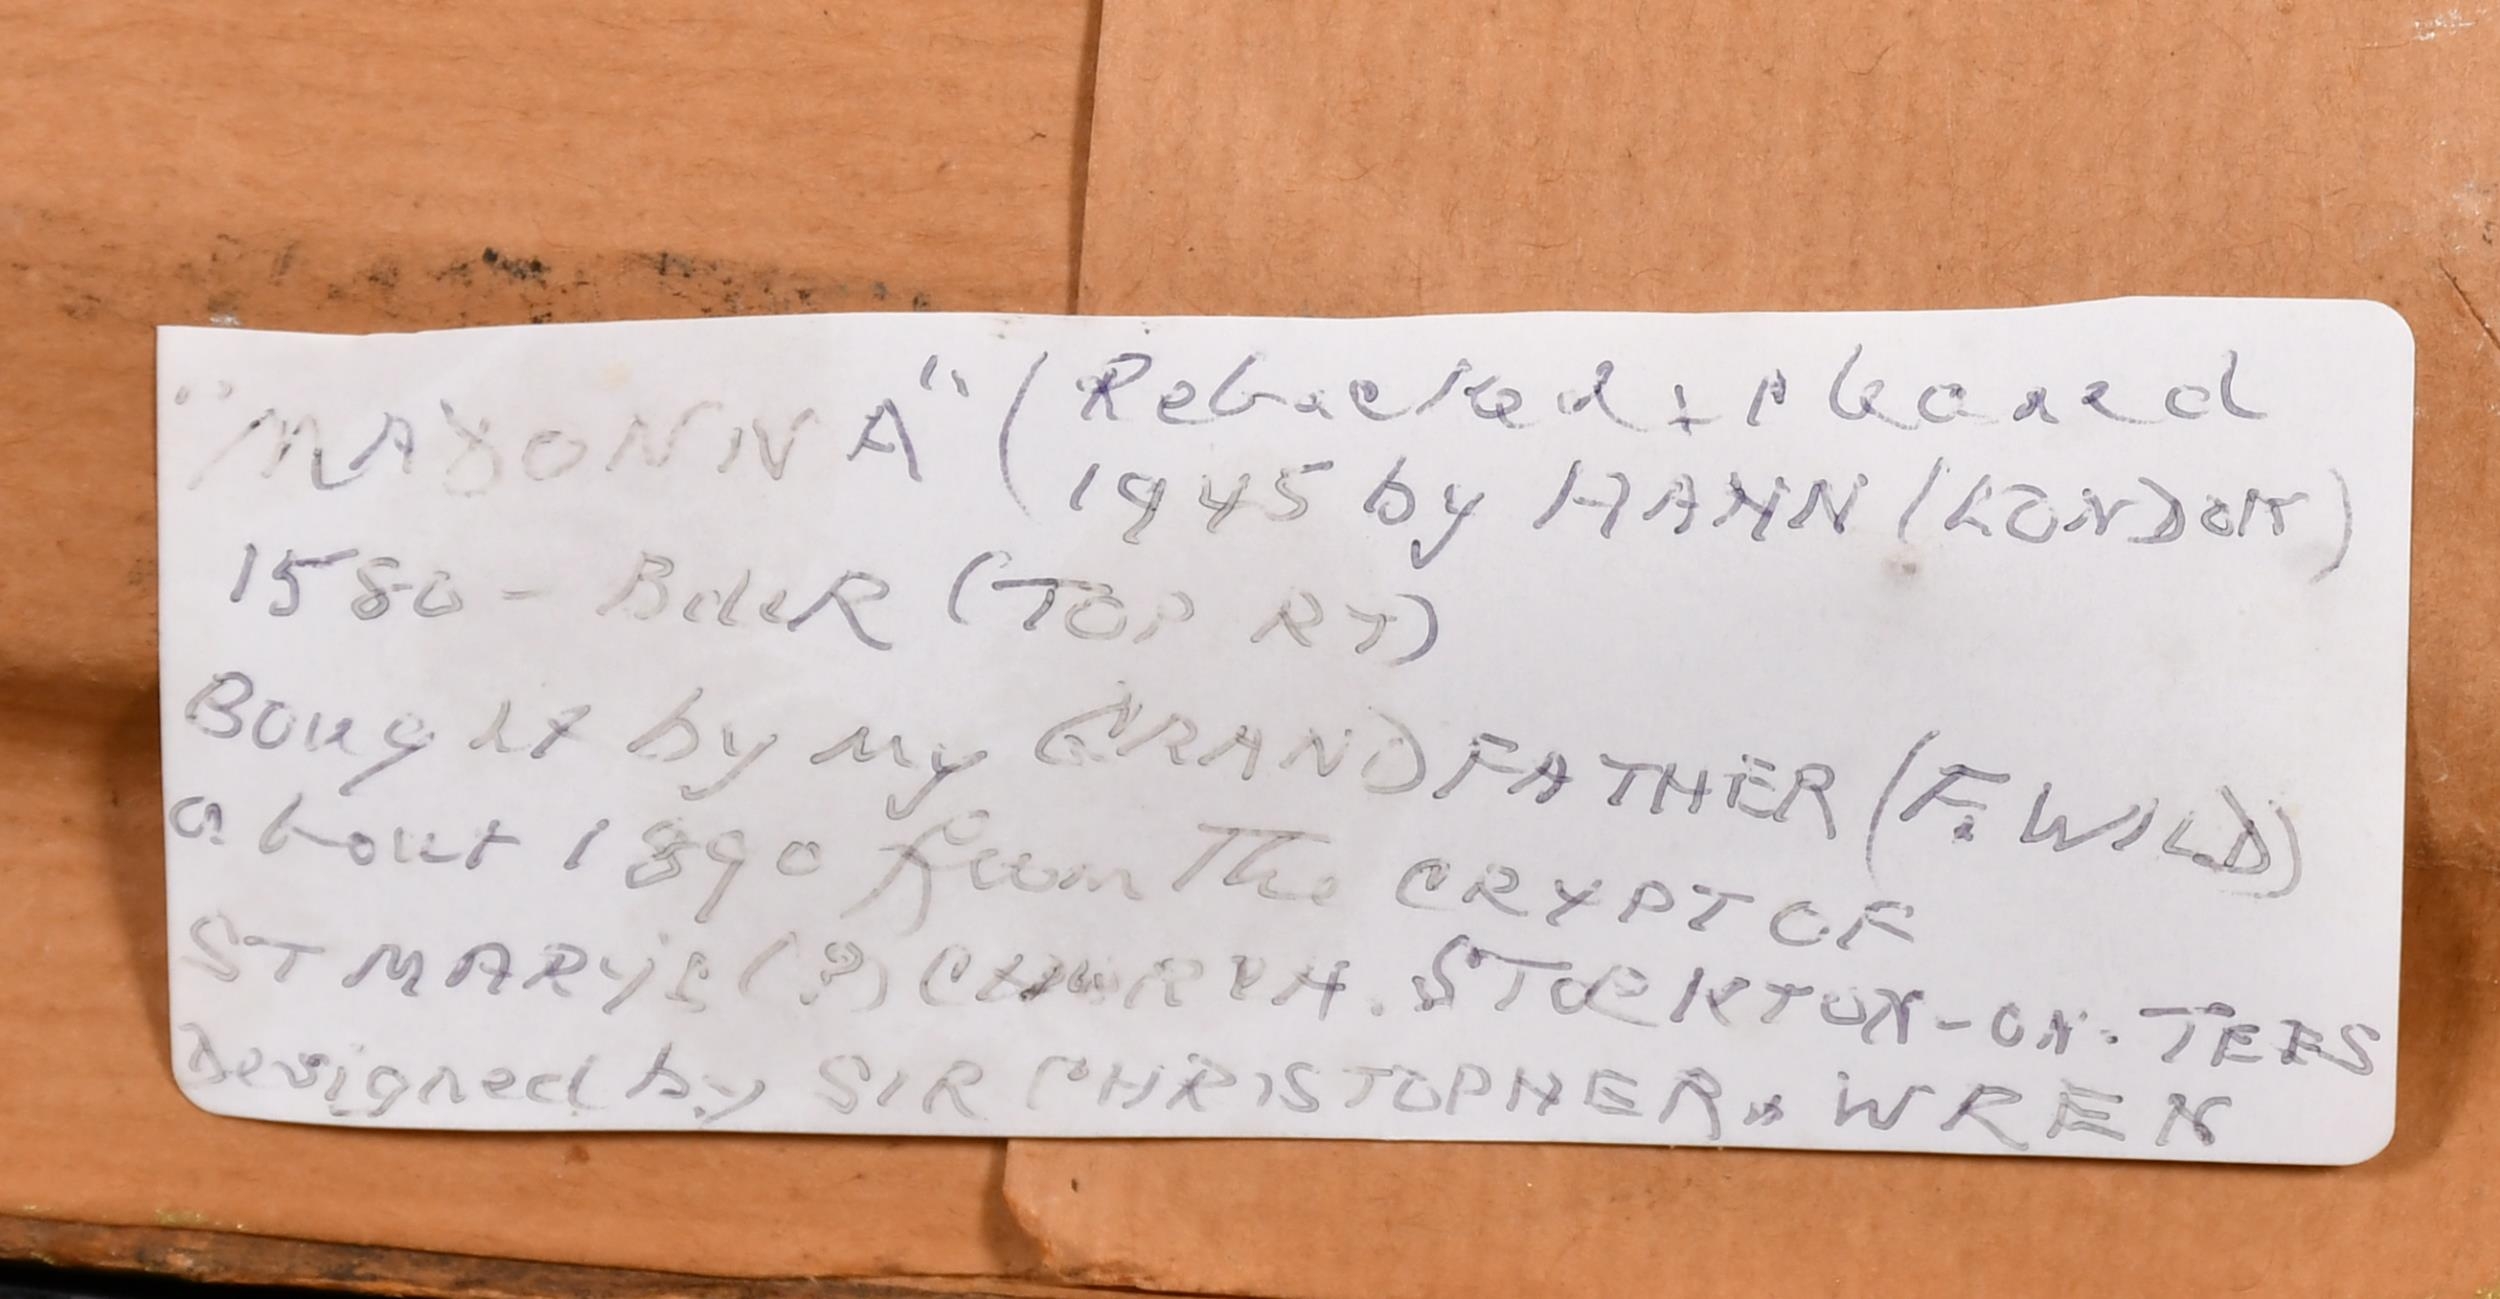 "MADONNA" (Rebacked + cleaned
1945 by HAHN (LONDON)
1580 - (TOP RT)
Bought by my GRANDFATHER (F. WILD)
about 1890 from The CRYPT OF
ST MARY'S (?) CHURCH. STOCKTON-ON-TEES
Designed by SIR CHRISTOPHER WREN